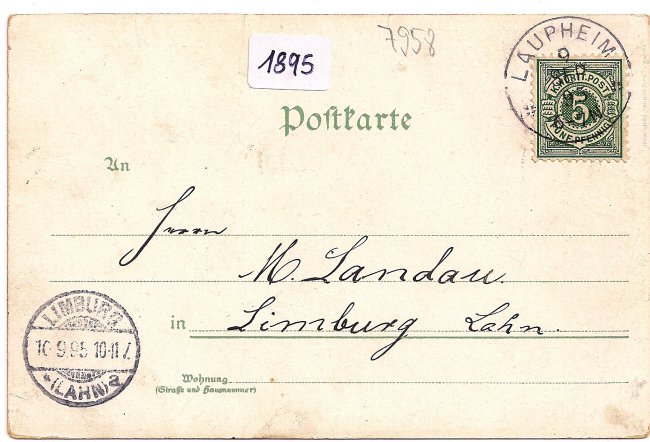 7958
1895
LAUPHEIM
9
SEP
K.WÜRTT.POST
5
FÜNF PFENNIG
Postkarte
An
Herrn
M. Landau.
in Limburg Lahn.
LIMBURG
10.9.95 10-11V.
* (LAHN) a
Wohnung
(Straße und Hausnummer)